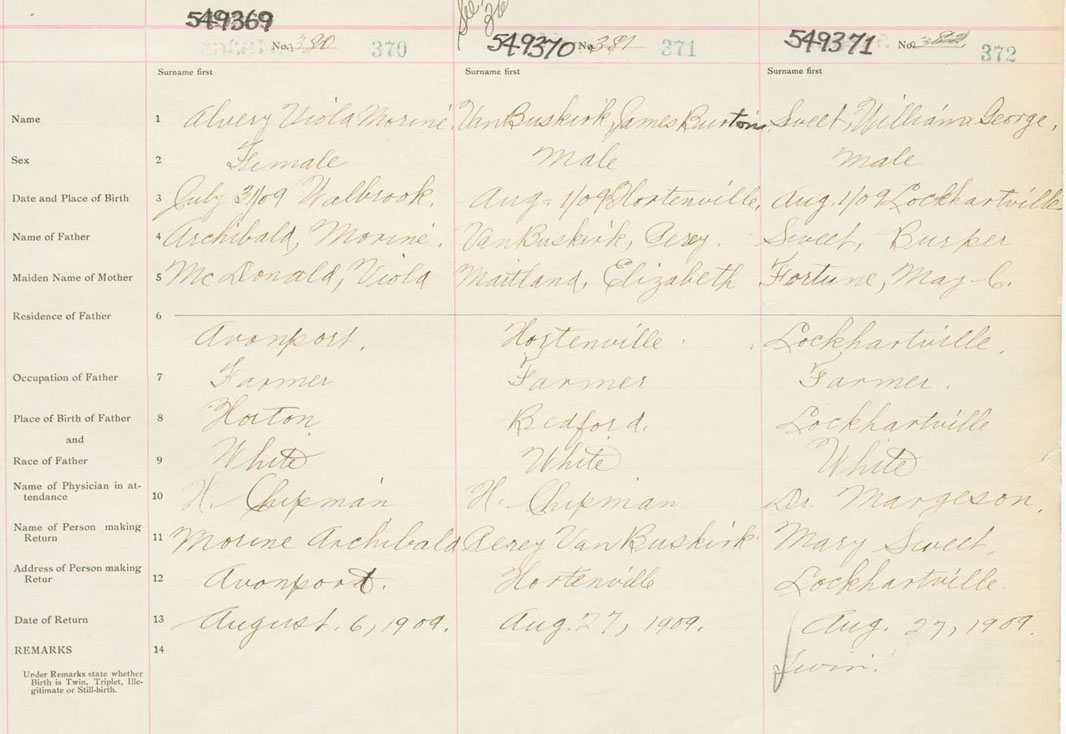 549369
No. 380 370
549370 No. 381 371
549371 No. 382 372
Surname first Surname first Surname first
Name 1 Alvery Viola Morine. VanBuskirk, James Burton. Sweet, William George.
Sex 2 Female Male Male
Date and Place of Birth 3 July 31/09 Walbrook. Aug. 1/09 Hortenville, Aug. 1/09 Lockhartville
Name of Father 4 Archibald, Morine. VanBuskirk, Percy. Sweet, Burper
Maiden Name of Mother 5 McDonald, Viola Maitland, Elizabeth Fortune, May C.
Residence of Father 6
Avonport. Hortenville Lockhartville.
Occupation of Father 7 Farmer Farmer Farmer.
Place of Birth of Father 8 Horton Bedford. Lockhartville
and
Race of Father 9 White White White
Name of Physician in at-
tendance 10 H. Chipman H. Chipman Dr. Margeson.
Name of Person making
Return 11 Morine Archibald Percy VanBuskirk Mary Sweet.
Address of Person making
Retur 12 Avonport. Hortenville Lockhartville.
Date of Return 13 August. 6, 1909. Aug. 27, 1909. Aug. 27, 1909.
REMARKS 14 Twin.
Under Remarks state whether
Birth is Twin, Triplet, Ille-
gitimate or Still-birth.